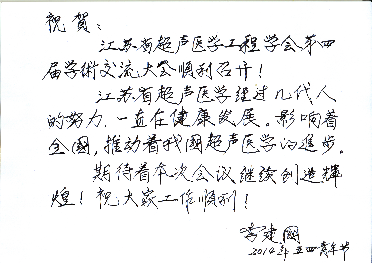 祝贺：
江苏省超声医学工程学会第四
届学術交流大会順利召开！
江苏省超声医学经过几代人
的努力，一直在健康发展。影响着
全國，推动着我國超声医学的進步。
期待着本次会议继续创造辉
煌！祝大家工作順利！
李建國
2014年五四青年节